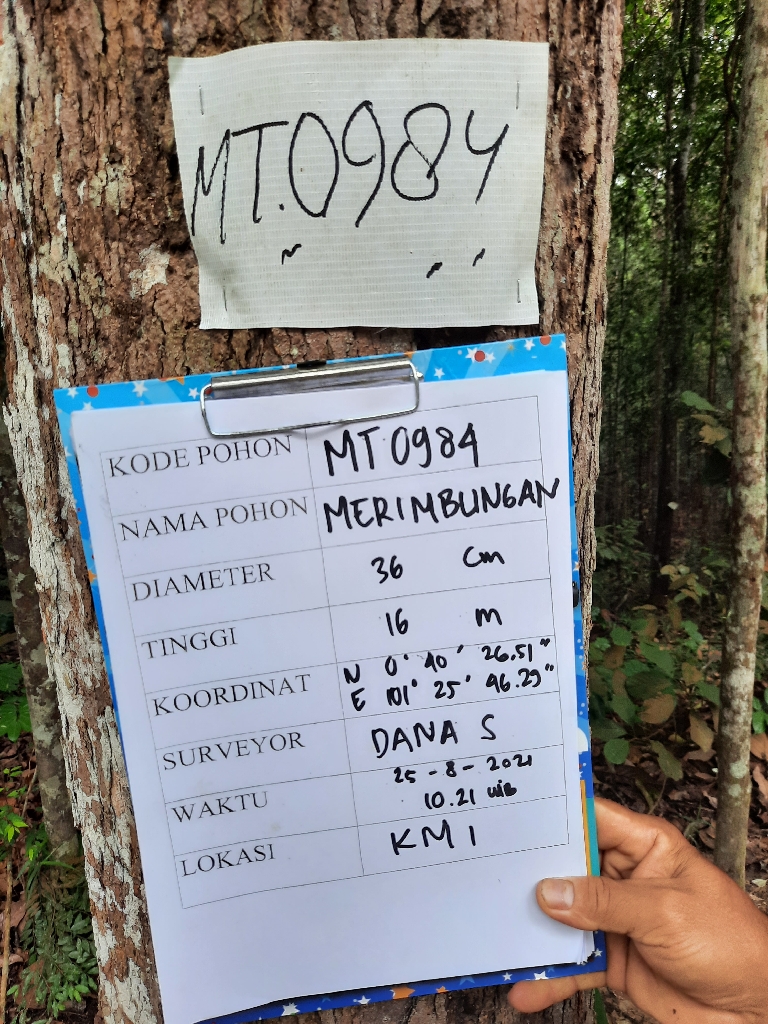 MT.0984
KODE POHON MT 0984
NAMA POHON MERIMBUNGAN
DIAMETER 36 Cm
TINGGI 16 m
KOORDINAT N 0° 40' 26.51"
E 101° 25' 46.29"
SURVEYOR DANA S
WAKTU 25-8-2021
10.21 WIB
LOKASI KM 1